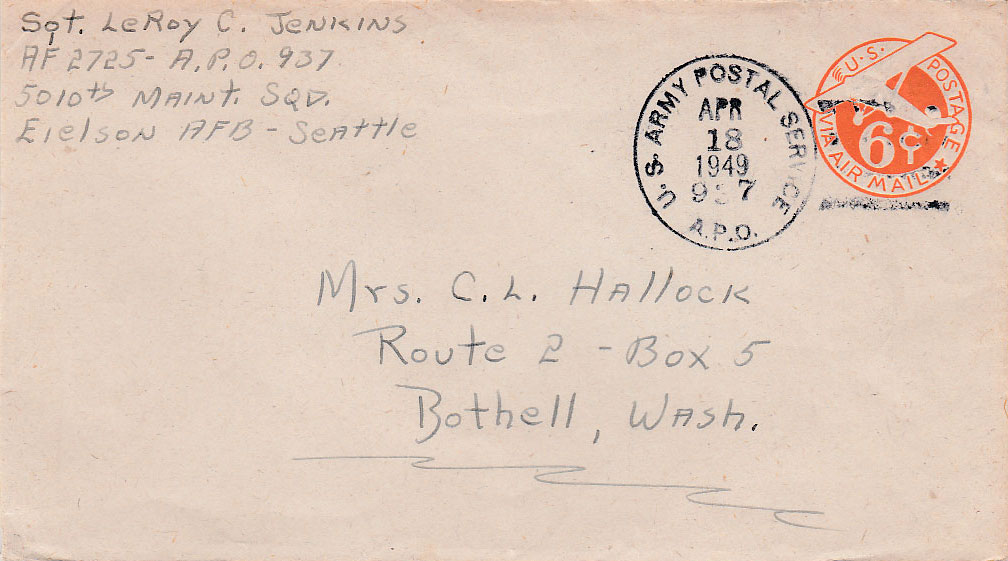 Sgt. LeRoy C. Jenkins
AF 2725 - A.P.O. 937
5010th Maint. Sqd.
Eielson AFB - Seattle
U.S. ARMY POSTAL SERVICE
APR
18
1949
937
A.P.O.
U.S. POSTAGE
6¢
VIA AIR MAIL
Mrs. C. L. Hallock
Route 2 - Box 5
Bothell, Wash.